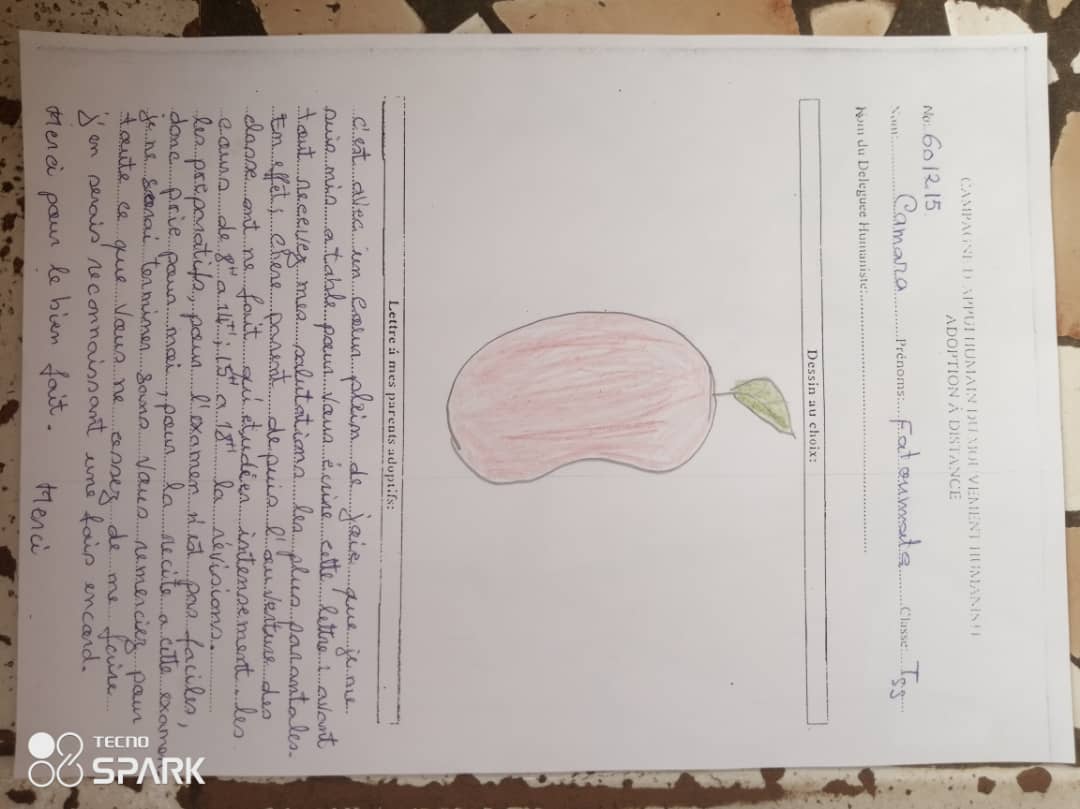 CAMPAGNE D'APPUI HUMAIN DU MOUVEMENT HUMANISTE
ADOPTION À DISTANCE
No: 601215
Nom: Camara Prénoms: Fatoumata Classe: Tss
Nom du Deleguee Humaniste:
Dessin au choix:
Lettre à mes parents adoptifs:
c'est avec un cœur plein de joie que je me
suis mis a table pour vous écrire cette lettre : avant
tout recevez mes salutations les plus parantales.
En effet, chere parent depuis l'ouverture des
classe ont ne fait qu'étudier intensement. les
cours de 8H a 14H, 15H a 18H la révisions.
les préparatifs, pour l'examen n'est pas faciles,
donc prie pour moi, pour la recite a cette examen
je ne serai terminer sans vous remerciez pour
toute ce que vous ne cessez de me faire
j'en serais reconnaissant une fois encord.
Merci pour le bien fait. Merci
TECNO
SPARK